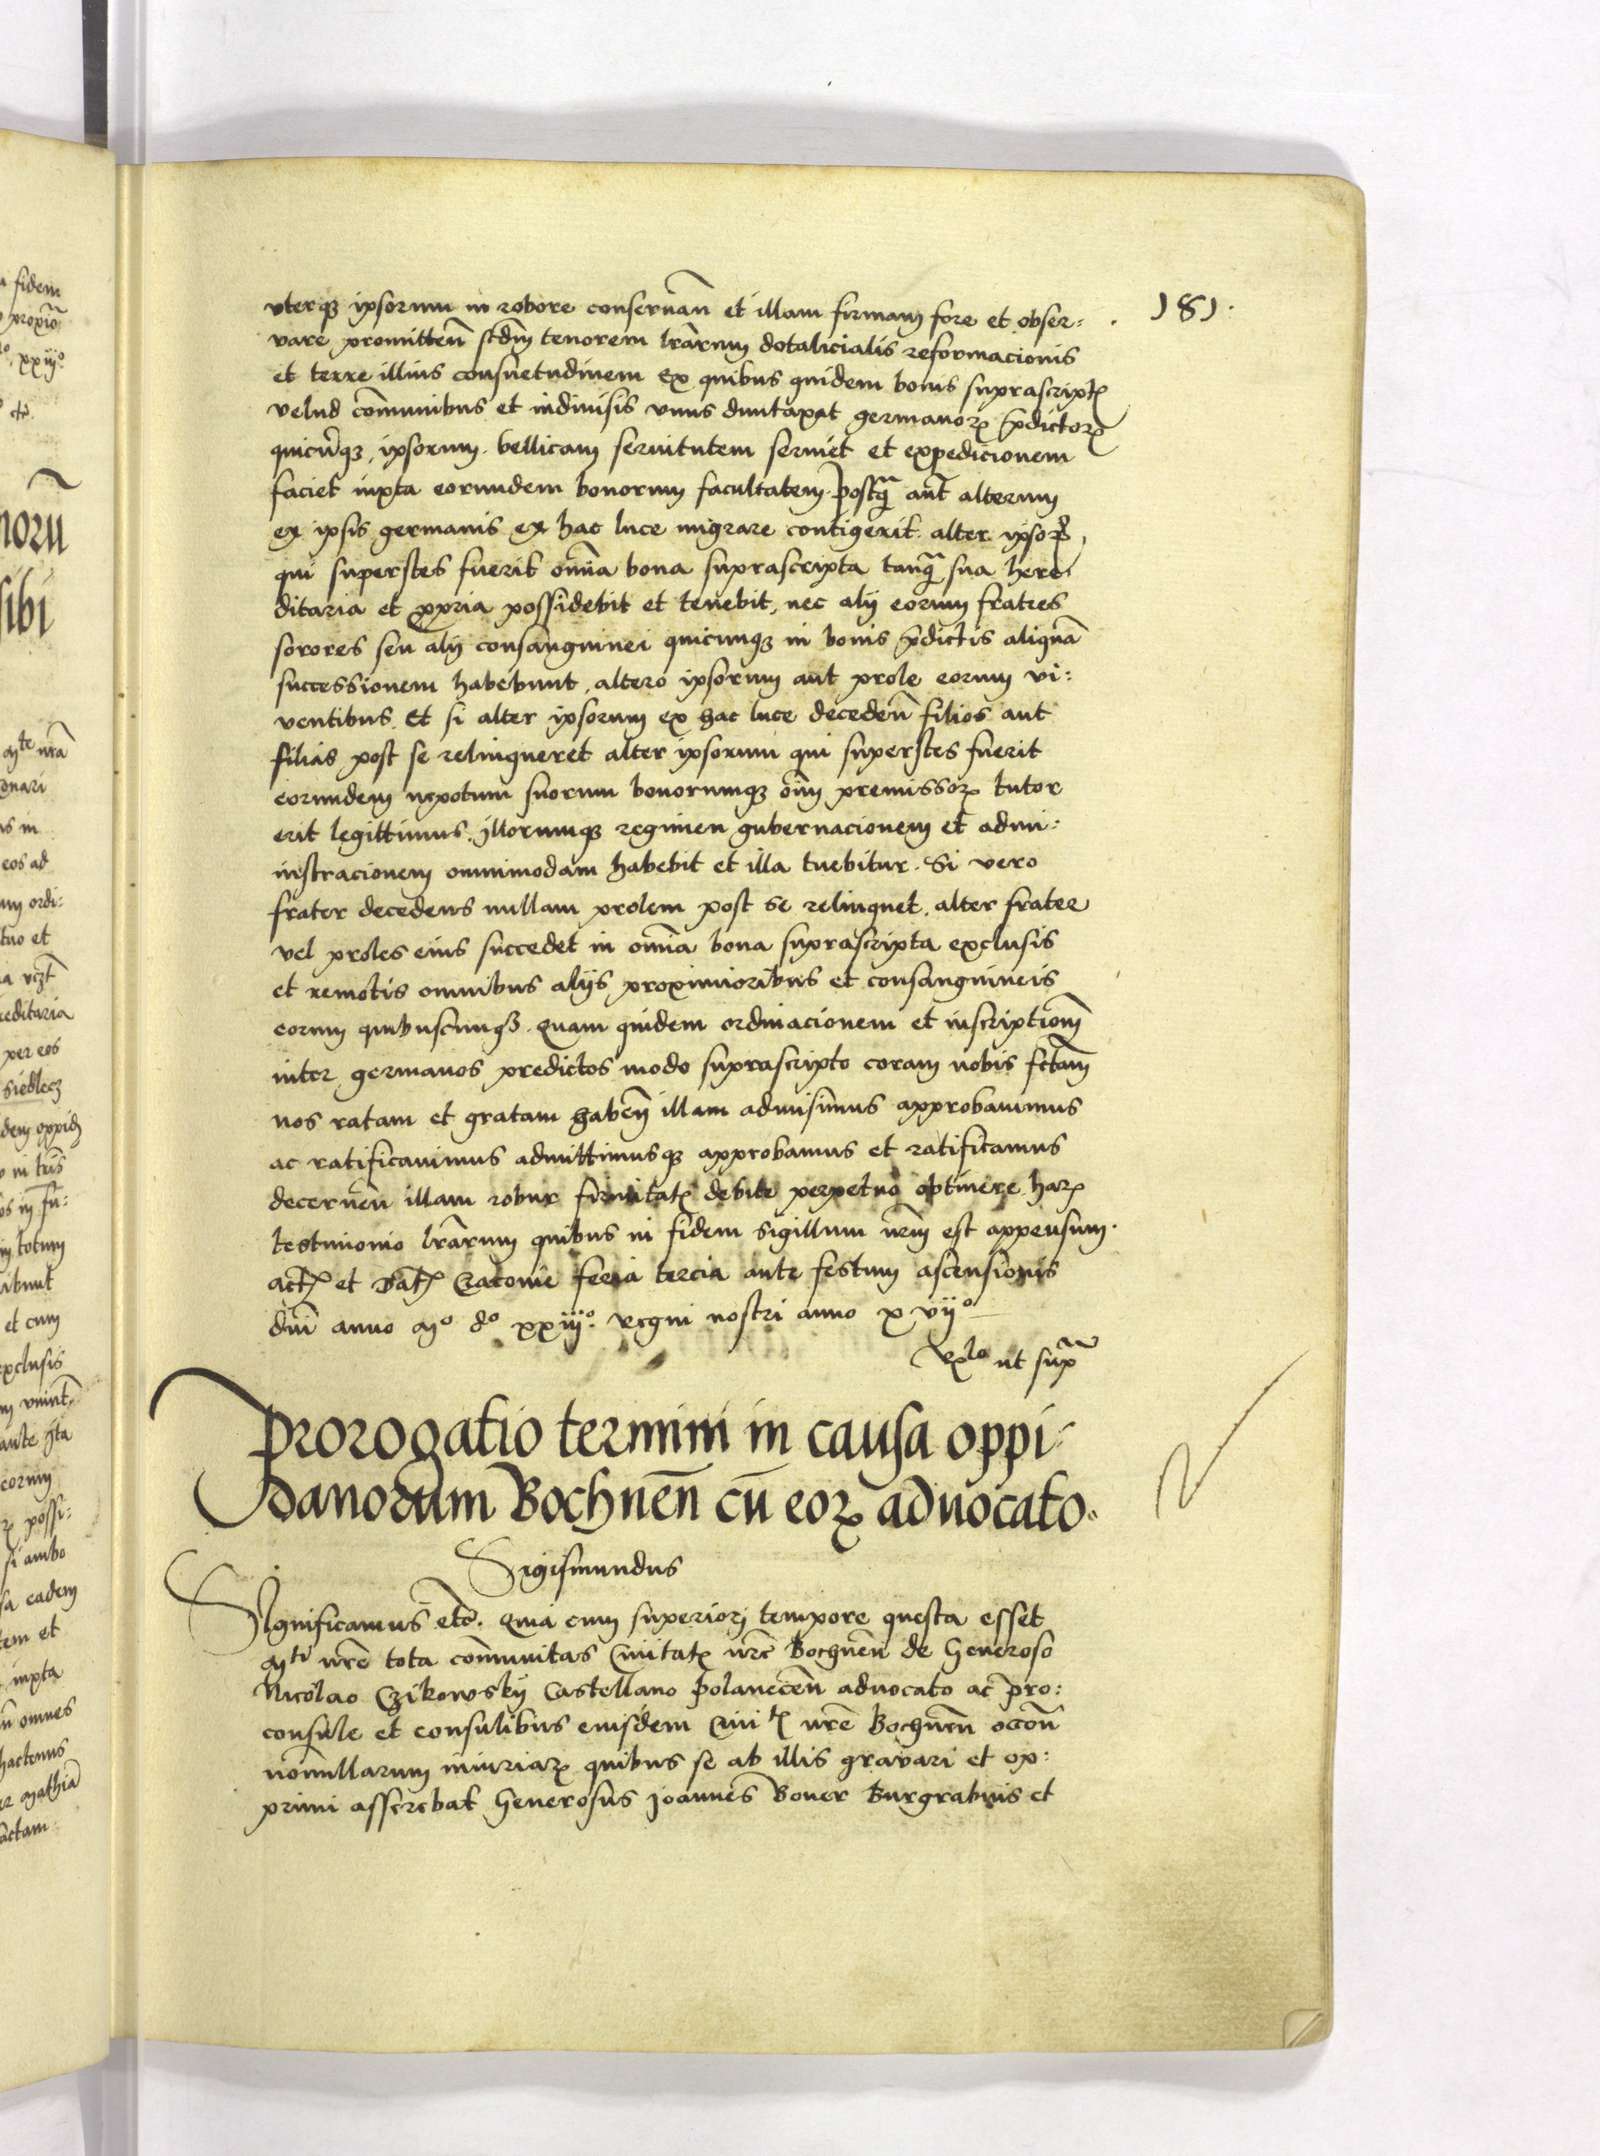 181.
vterqз ipsorum in robore conseruañ et illam firmam fore et obser:
vare promitteñ scdm̄ tenorem lrārum dotalicialis reformacionis
et terre illius consuetudinem ex quibus quidem bonis suprascriptꝭ
velud cōmunibus et indiuisis vnus duntaxat germanorꝫ p̄dictorꝫ
quicūqꝫ ipsorum bellicam seruitutem seruiet et expedicionem
faciet iuxta eorundem bonorum facultatem. Postq̄ aūt alterum
ex ipsis germanis ex hac luce migrare contigerit alter ipsorꝫ
qui superstes fuerit om̄ia bona suprascripta tanq̄ sua here
ditaria et ꝓpria possidebit et tenebit, nec alij eorum fratres
sorores seu alij consanguinei quicunqꝫ in bonis p̄dictis aliquā
successionem habebunt, altero ipsorum aut prole eorum vi:
ventibus. Et si alter ipsorum ex hac luce decedeñ filios aut
filias post se relinqueret alter ipsorum qui superstes fuerit
eorundem nepotum suorum bonorumqꝫ om̄im premissorꝫ tutor
erit legittimus. Illorumqꝫ regimen gubernacionem et admi:
nistracionem omnimodam habebit et illa tuebitur. Si vero
frater decedens nullam prolem post se relinquet, alter frater
vel proles eius succedet in om̄ia bona suprascripta exclusis
et remotis omnibus alijs proximioribus et consanguineis
eorum quibuscunqꝫ. Quam quidem ordinacionem et inscriptionē
inter germanos predictos modo suprascripto coram nobis fctam̄
nos ratam et gratam habeñ illam admisimus approbauimus
ac ratificauimus admittimusqꝫ approbamus et ratificamus
decerneñ illam robur firmitatꝭ debite perpetuo optinere harꝫ
testimonio lrārum quibus in fidem sigillum nrm̄ est appensum.
Actꝫ et Datꝫ Cracouie feria tercia ante festum ascensionis
dnī anno Mº dº xxiijº. Regni nostri anno xvijº
Relo ut supᷓ
Prorogatio termini in causa oppi:
danorum Bochneñ cū eorꝫ advocato.
Sigismundus
Significamus etc̄. Quia cum superiori tempore questa esset
Mti nrē tota cōmunitas Ciuitatꝭ nrē Bochneñ de Generoso
Nicolao Czikowskij Castellano Polaneceñ aduocato ac pro:
consule et consulibus eiusdem Ciuitꝭ nrē Bochneñ occoñ
nōnullarum iniuriarꝫ quibus se ab illis grauari et op:
primi asserebat Generosus Joannes Boner Burgrabius et